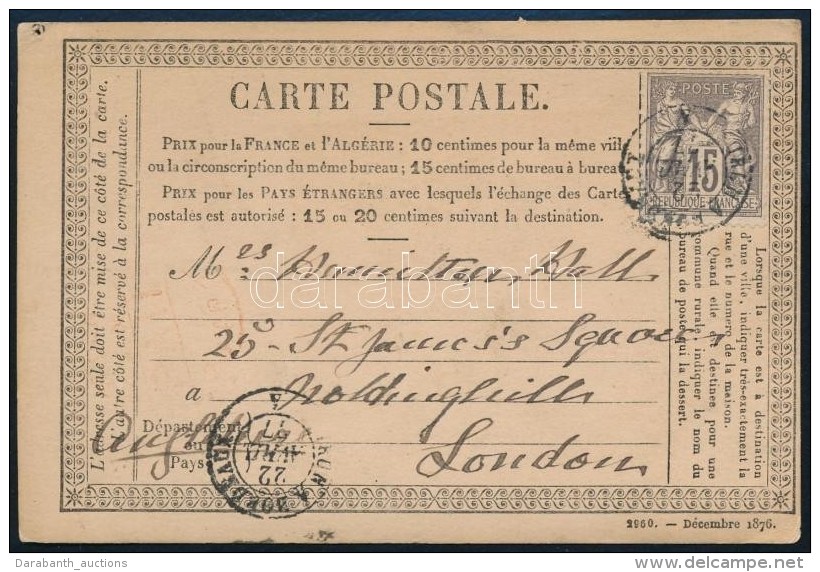 CARTE POSTALE.
PRIX pour la FRANCE et l'ALGÉRIE : 10 centimes pour la même vill
ou la circonscription du même bureau ; 15 centimes de bureau à bureau
PRIX pour les PAYS ÉTRANGERS avec lesquels l'échange des Carte
postales est autorisé : 15 ou 20 centimes suivant la destination.
POSTE
15
REPUBLIQUE FRANÇAISE
L'adresse seule doit être mise de ce côté de la carte.
L'autre côté est réservé à la correspondance.
Lorsque la carte est à destination
d'une ville, indiquer très-exactement la
rue et le numéro de la maison.
Quand elle est destinée pour une
commune rurale, indiquer le nom du
bureau de poste qui la dessert.
Mrs Hamilton Hall
25 St James's Square
à Notting hill
Département
ou
Pays
London
22
77
2960. — Décembre 1876.
darabanth
Darabanth_auctions
www.delcampe.net